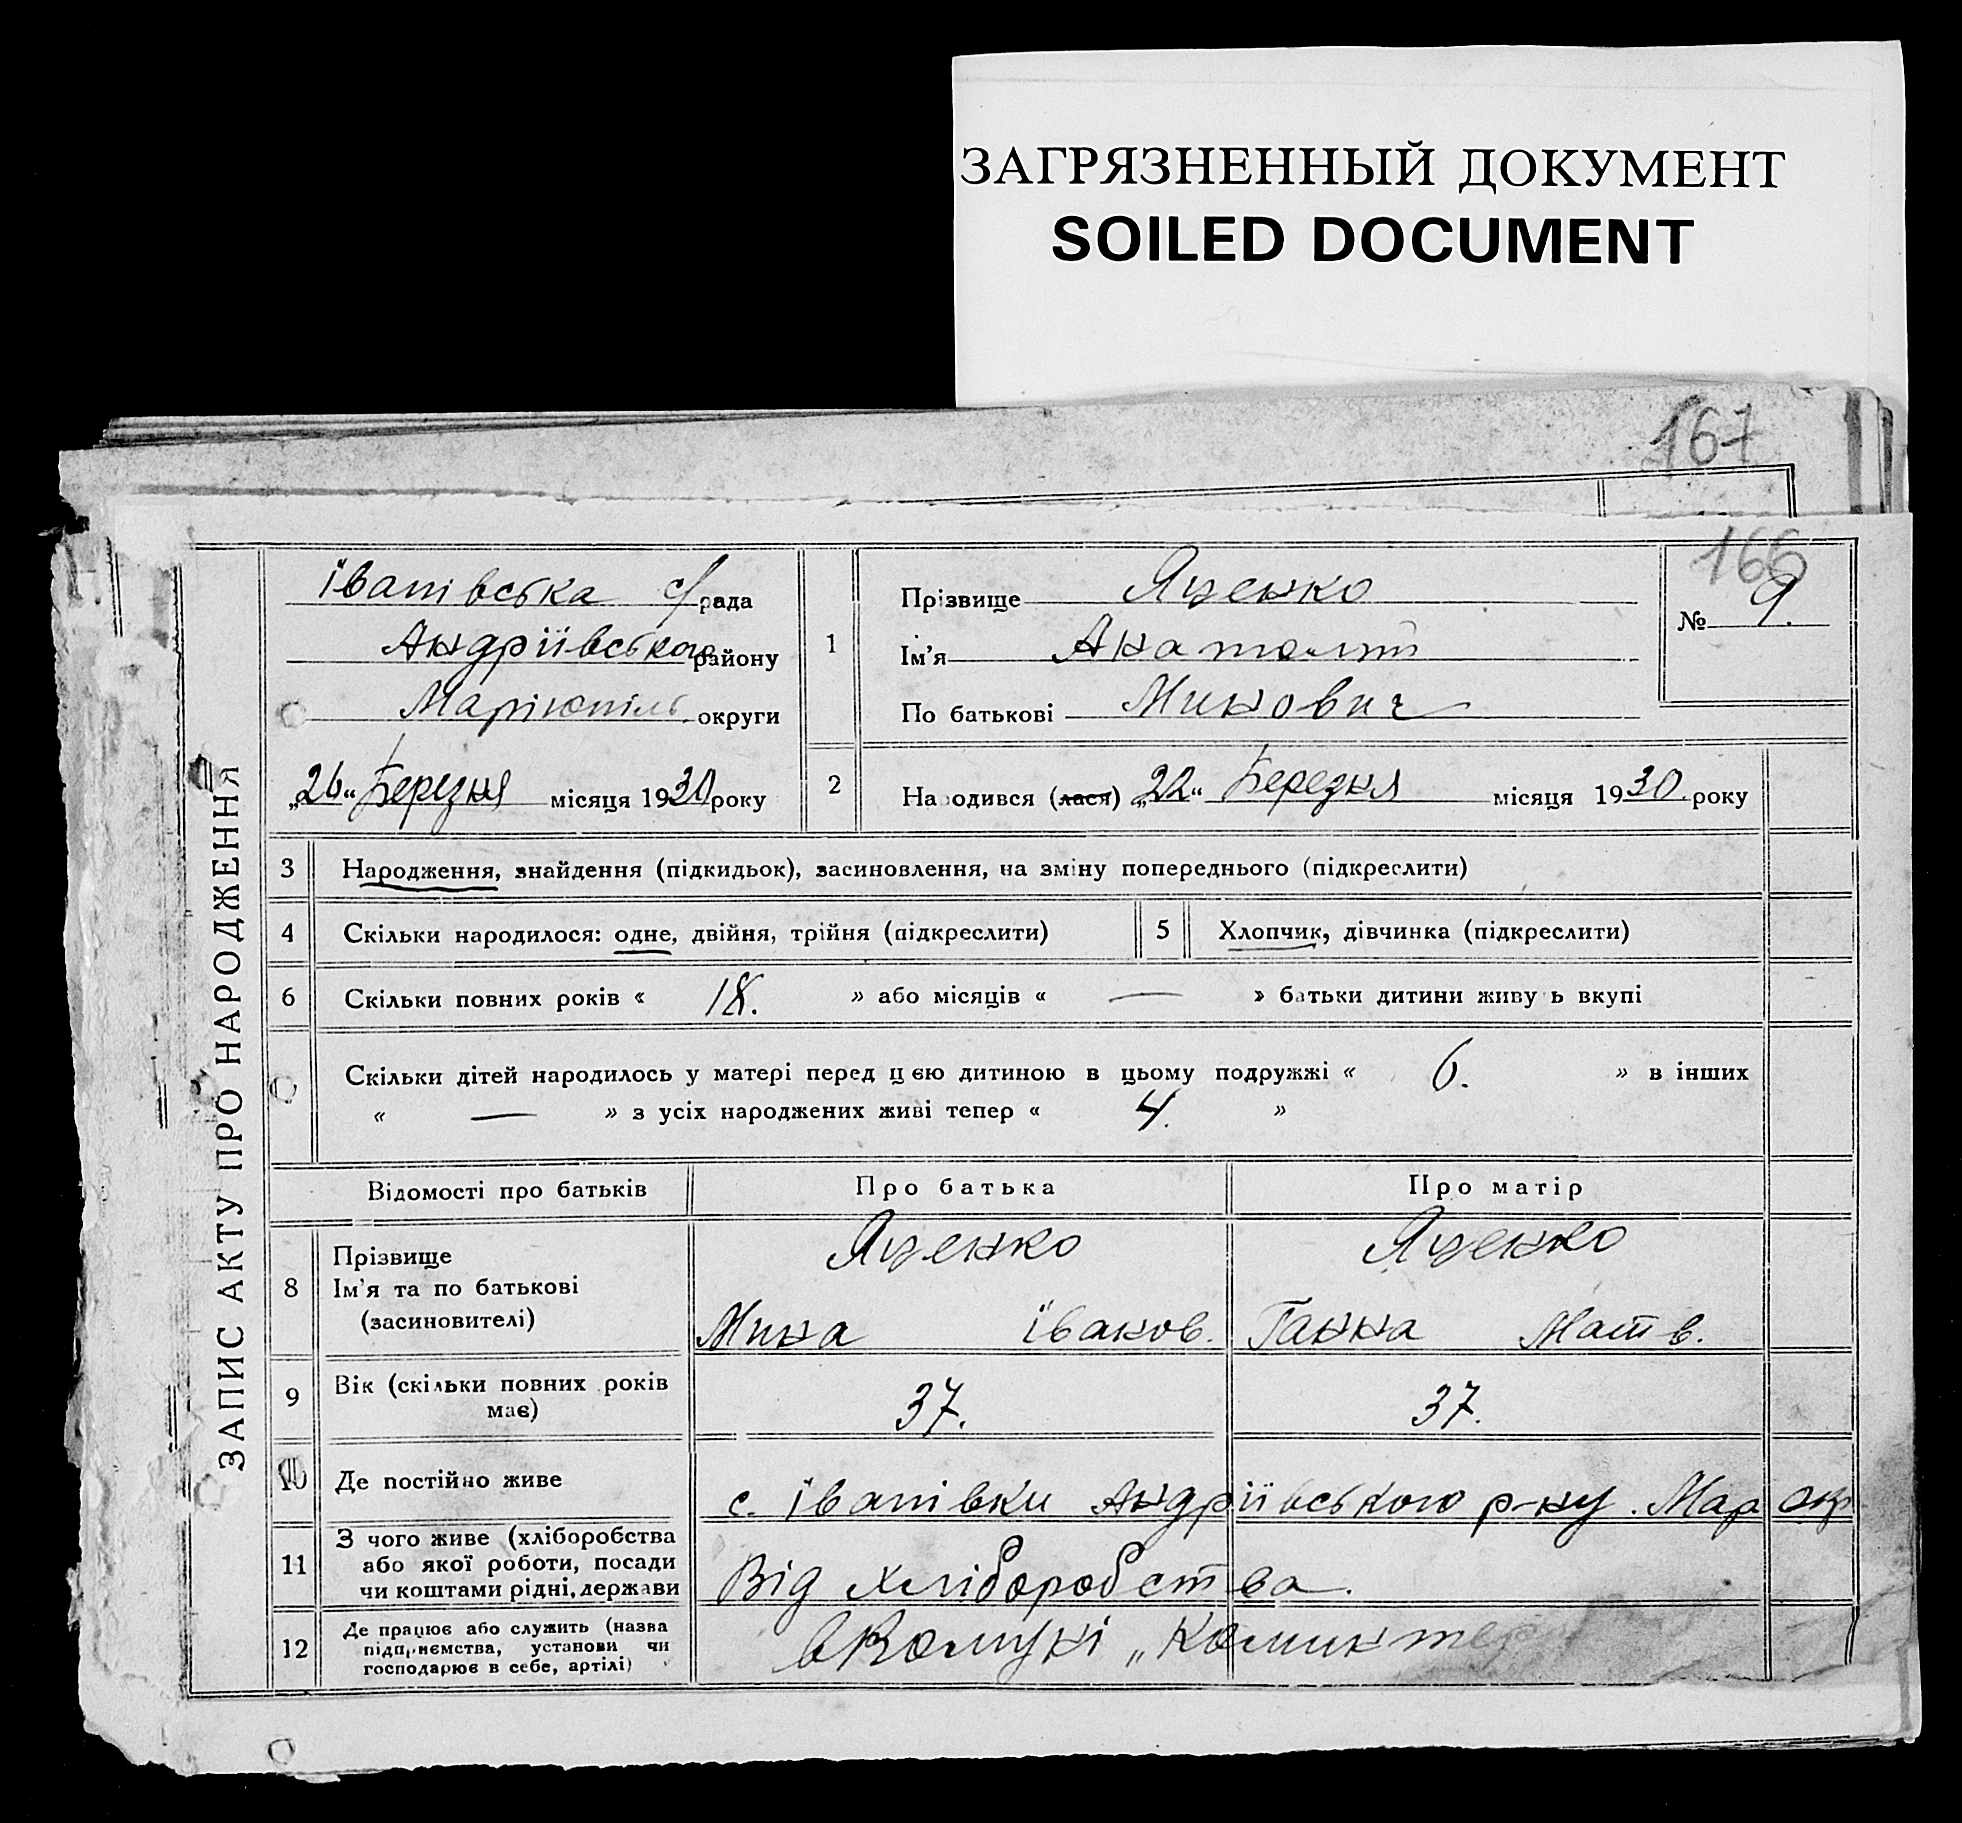 ЗАГРЯЗНЕННЫЙ ДОКУМЕНТ
SOILED DOCUMENT
167
166
ЗАПИС АКТУ ПРО НАРОДЖЕННЯ
Іванівська с/рада
Андріївського району
Маріюпіль округи
„26“ Березня місяця 1930 року
1
Прізвище Яценко
Ім'я Анатолій
По батькові Минович
№ 9.
2
Народився (лася) „22“ Березня місяця 1930 року
3 Народження, знайдення (підкидьок), засиновлення, на зміну попереднього (підкреслити)
4 Скільки народилося: одне, двійня, трійня (підкреслити) 5 Хлопчик, дівчинка (підкреслити)
6 Скільки повних років « 18. » або місяців « — » батьки дитини живуть вкупі
Скільки дітей народилось у матері перед цією дитиною в цьому подружжі « 6. » в інших
« — » з усіх народжених живі тепер « 4. »
Відомості про батьків Про батька Про матір
8 Прізвище Яценко Яценко
Ім'я та по батькові
(засиновителі) Мина Іванов. Ганна Матв.
9 Вік (скільки повних років має) 37. 37.
10 Де постійно живе с. Іванівки Андріївського р-ну. Мар окр
11 З чого живе (хліборобства
або якої роботи, посади
чи коштами рідні, держави Від хліборобства.
12 Де працює або служить (назва
підприємства, установи чи
господарює в себе, артілі) в Комуні „Коминтер